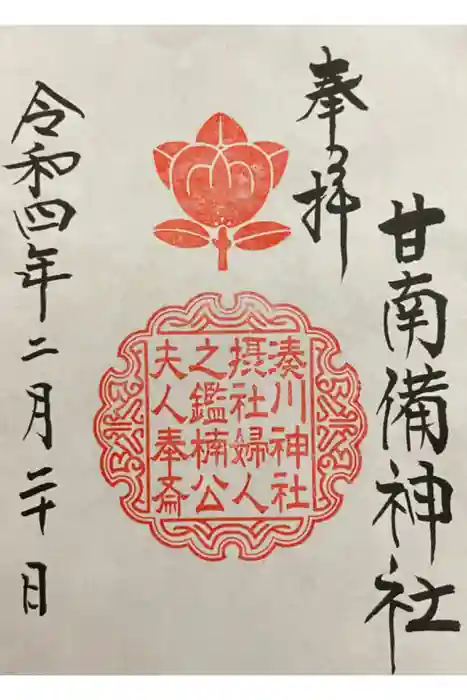 奉拝
甘南備神社
湊川神社
摂社婦人
之鑑楠公
夫人奉斎
令和四年二月二十日